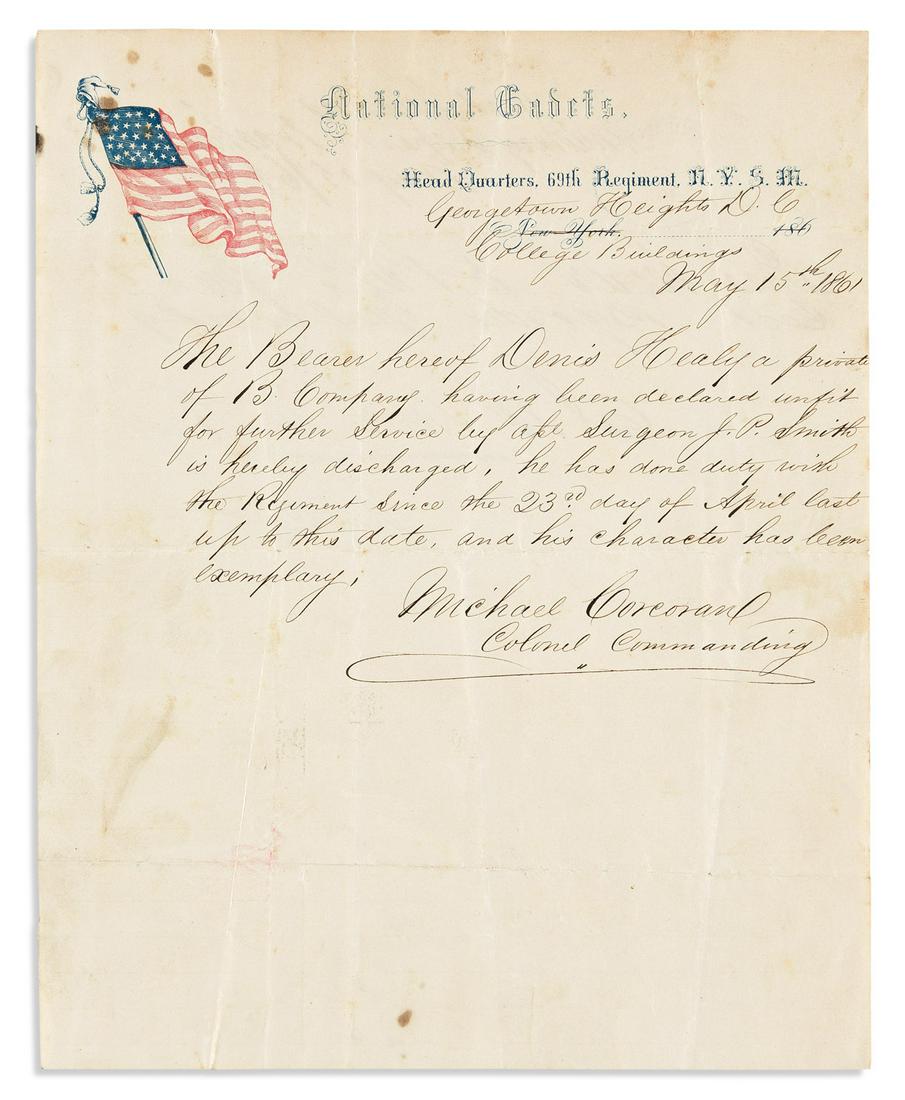 National Cadets.
Head Quarters, 69th Regiment, N. Y. S. M.
Georgetown Heights D. C
New York, 186
College Buildings
May 15th 1861
The Bearer hereof Denis Healy a private
of B. Company having been declared unfit
for further Service by Surgeon J. P. Smith
is hereby discharged, he has done duty with
the Regiment since the 23rd day of April last
up to this date, and his character has been
exemplary,
Michael Corcoran
Colonel Commanding